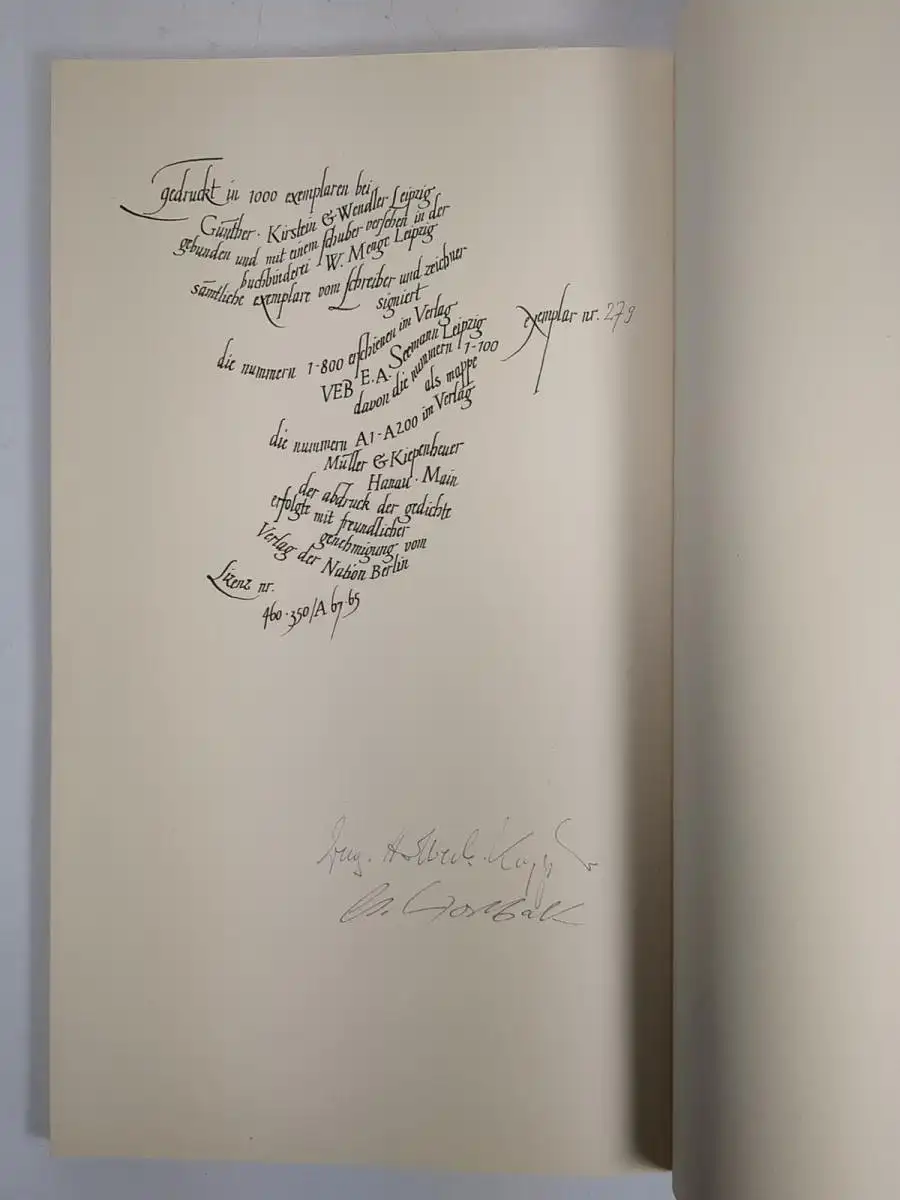 gedruckt in 1000 exemplaren bei
Günther · Kirstein & Wendler Leipzig
gebunden und mit einem schuber versehen in der
buchbinderei W. Menge Leipzig
sämtliche exemplare vom schreiber und zeichner
signiert
exemplar nr. 279
die nummern 1-800 erschienen im Verlag
VEB E.A. Seemann Leipzig
davon die nummern 1-100
als mappe
die nummern A1-A200 im Verlag
Müller & Kiepenheuer
Hanau · Main
der abdruck der gedichte
erfolgte mit freundlicher
genehmigung vom
Verlag der Nation Berlin
Lizenz nr.
460·350/A 67·65